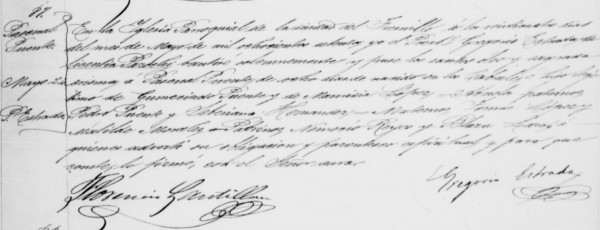 97.
Pascual
Puente
Mayo 2
P. Estrada
En la Iglesia Parroquial de la ciudad del Fresnillo á los
del mes de Mayo de mil ochocientos ochenta yo el Presb. Gregorio Estrada de
licentia Parochi bauticé solemnemente y puse los santos oleo y sagrado
crisma a Pascual Puente de ocho dias de nacido en hijo legi
timo de Gumecindo Puente y de Lopez Abuelos paternos
Pedro Puente y Hernandez Maternos Tomas Lopez y
Matilde Morales Padrinos Reyes y a
quienes advertí su obligacion y parentesco espiritual y para que
conste lo firmé con el Señor cura
Florencio Santillan
Gregorio Estrada